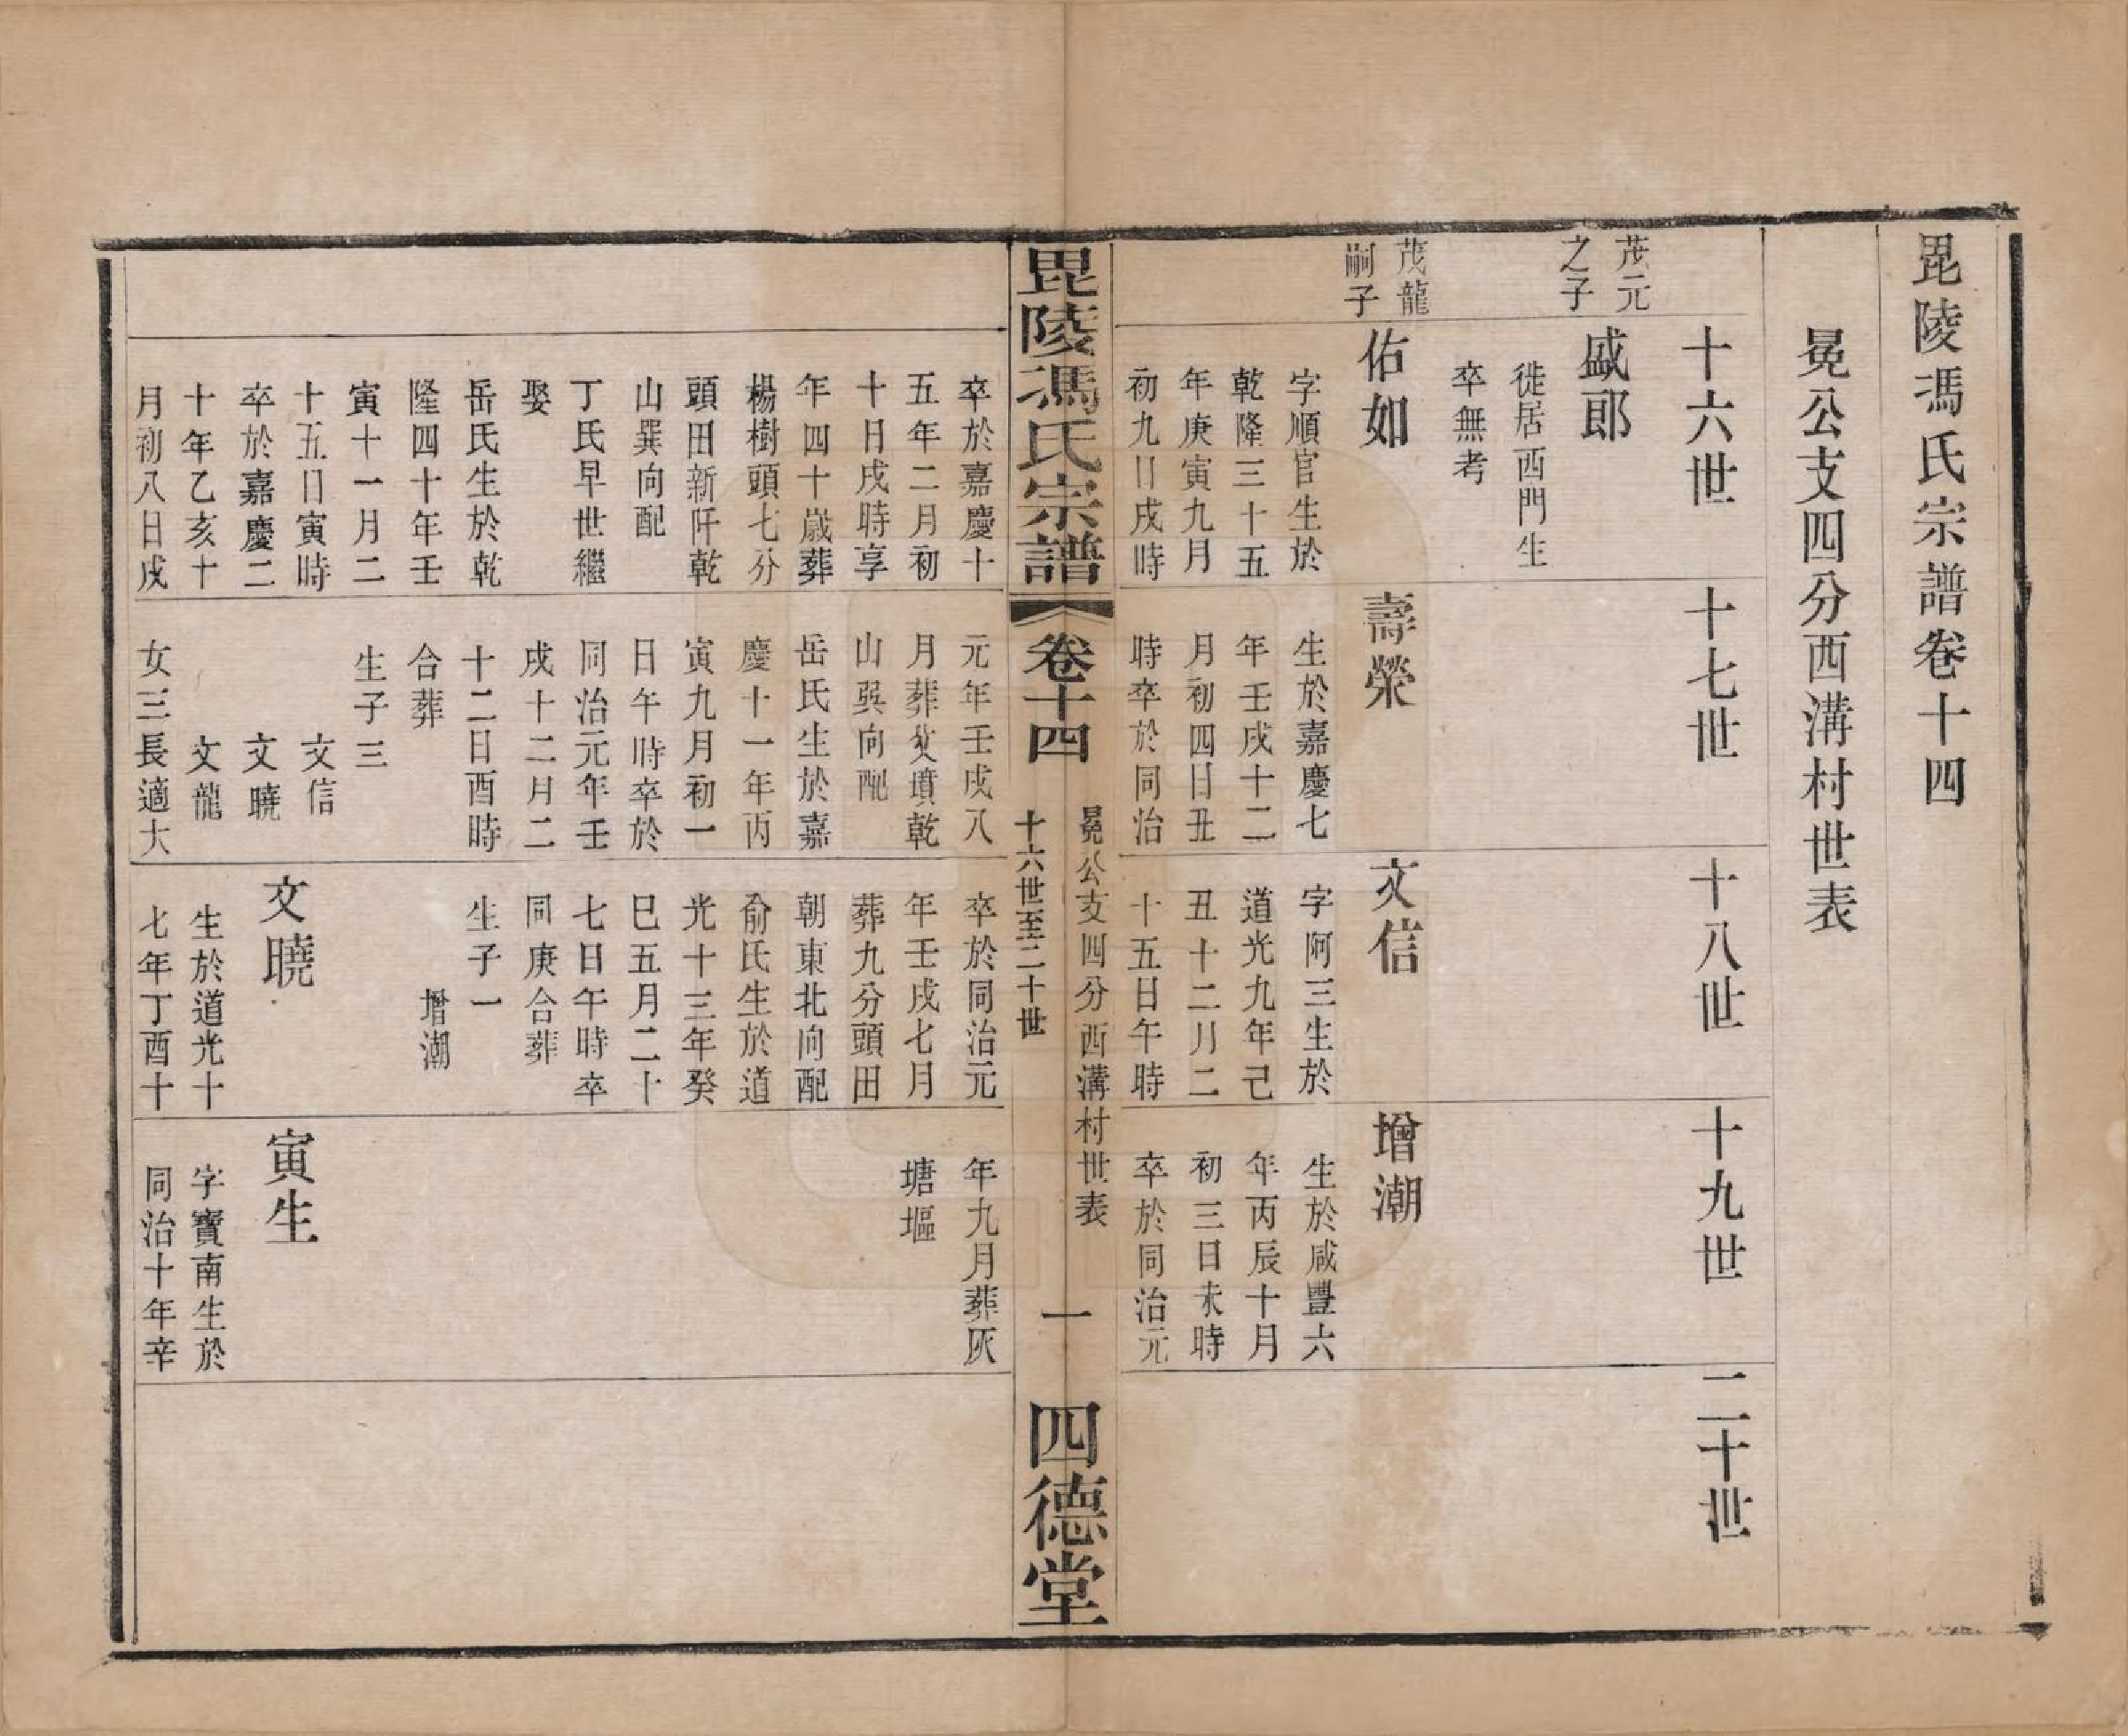 毘陵馮氏宗譜卷十四
冕公支四分西溝村世表
十六世
十七世
十八世
十九世
二十世
茂元
之子
盛郎
徙居西門生
卒無考
茂龍
嗣子
佑如
字順官生於
乾隆三十五
年庚寅九月
初九日戌時
壽榮
生於嘉慶七
年壬戌十二
月初四日丑
時卒於同治
文信
字阿三生於
道光九年己
丑十二月二
十五日午時
增潮
生於咸豐六
年丙辰十月
初三日未時
卒於同治元
毘陵馮氏宗譜
卷十四
冕公支四分西溝村世表
十六世至二十世
一
四德堂
卒於嘉慶十
五年二月初
十日戌時享
年四十歲葬
楊樹頭七分
頭田新阡乾
山巽向配
丁氏早世繼
娶
岳氏生於乾
隆四十年壬
寅十一月二
十五日寅時
卒於嘉慶二
十年乙亥十
月初八日戌
元年壬戌八
月葬父墳乾
山巽向配
岳氏生於嘉
慶十一年丙
寅九月初一
日午時卒於
同治元年壬
戌十二月二
十二日酉時
合葬
生子三
文信
文曉
文龍
女三長適大
卒於同治元
年壬戌七月
葬九分頭田
朝東北向配
俞氏生於道
光十三年癸
巳五月二十
七日午時卒
同庚合葬
生子一
增潮
文曉
生於道光十
七年丁酉十
年九月葬灰
塘塸
寅生
字寶南生於
同治十年辛